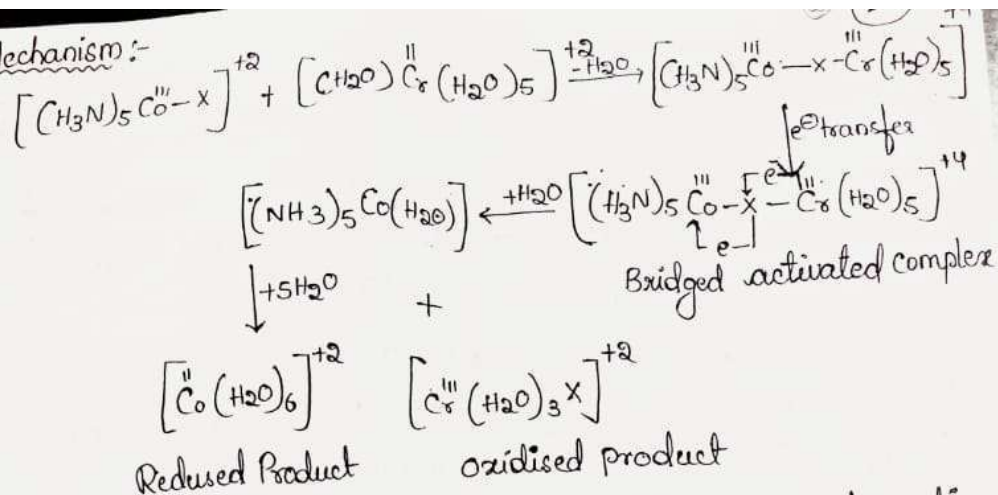 Mechanism :-
[(H3N)5 Co^III – X]^+2 + [(H2O) Cr^II (H2O)5]^+2 -H2O → [(H3N)5 Co^III — X – Cr^III (H2O)5]^+4
e⊖ transfer
[(NH3)5 Co(H2O)] ← +H2O [(H3N)5 Co^III – X – Cr^II (H2O)5]^+4
e
e
Bridged activated complex
+5H2O
+
[Co^II (H2O)6]^+2 [Cr^III (H2O)3 X]^+2
Redused Product oxidised product